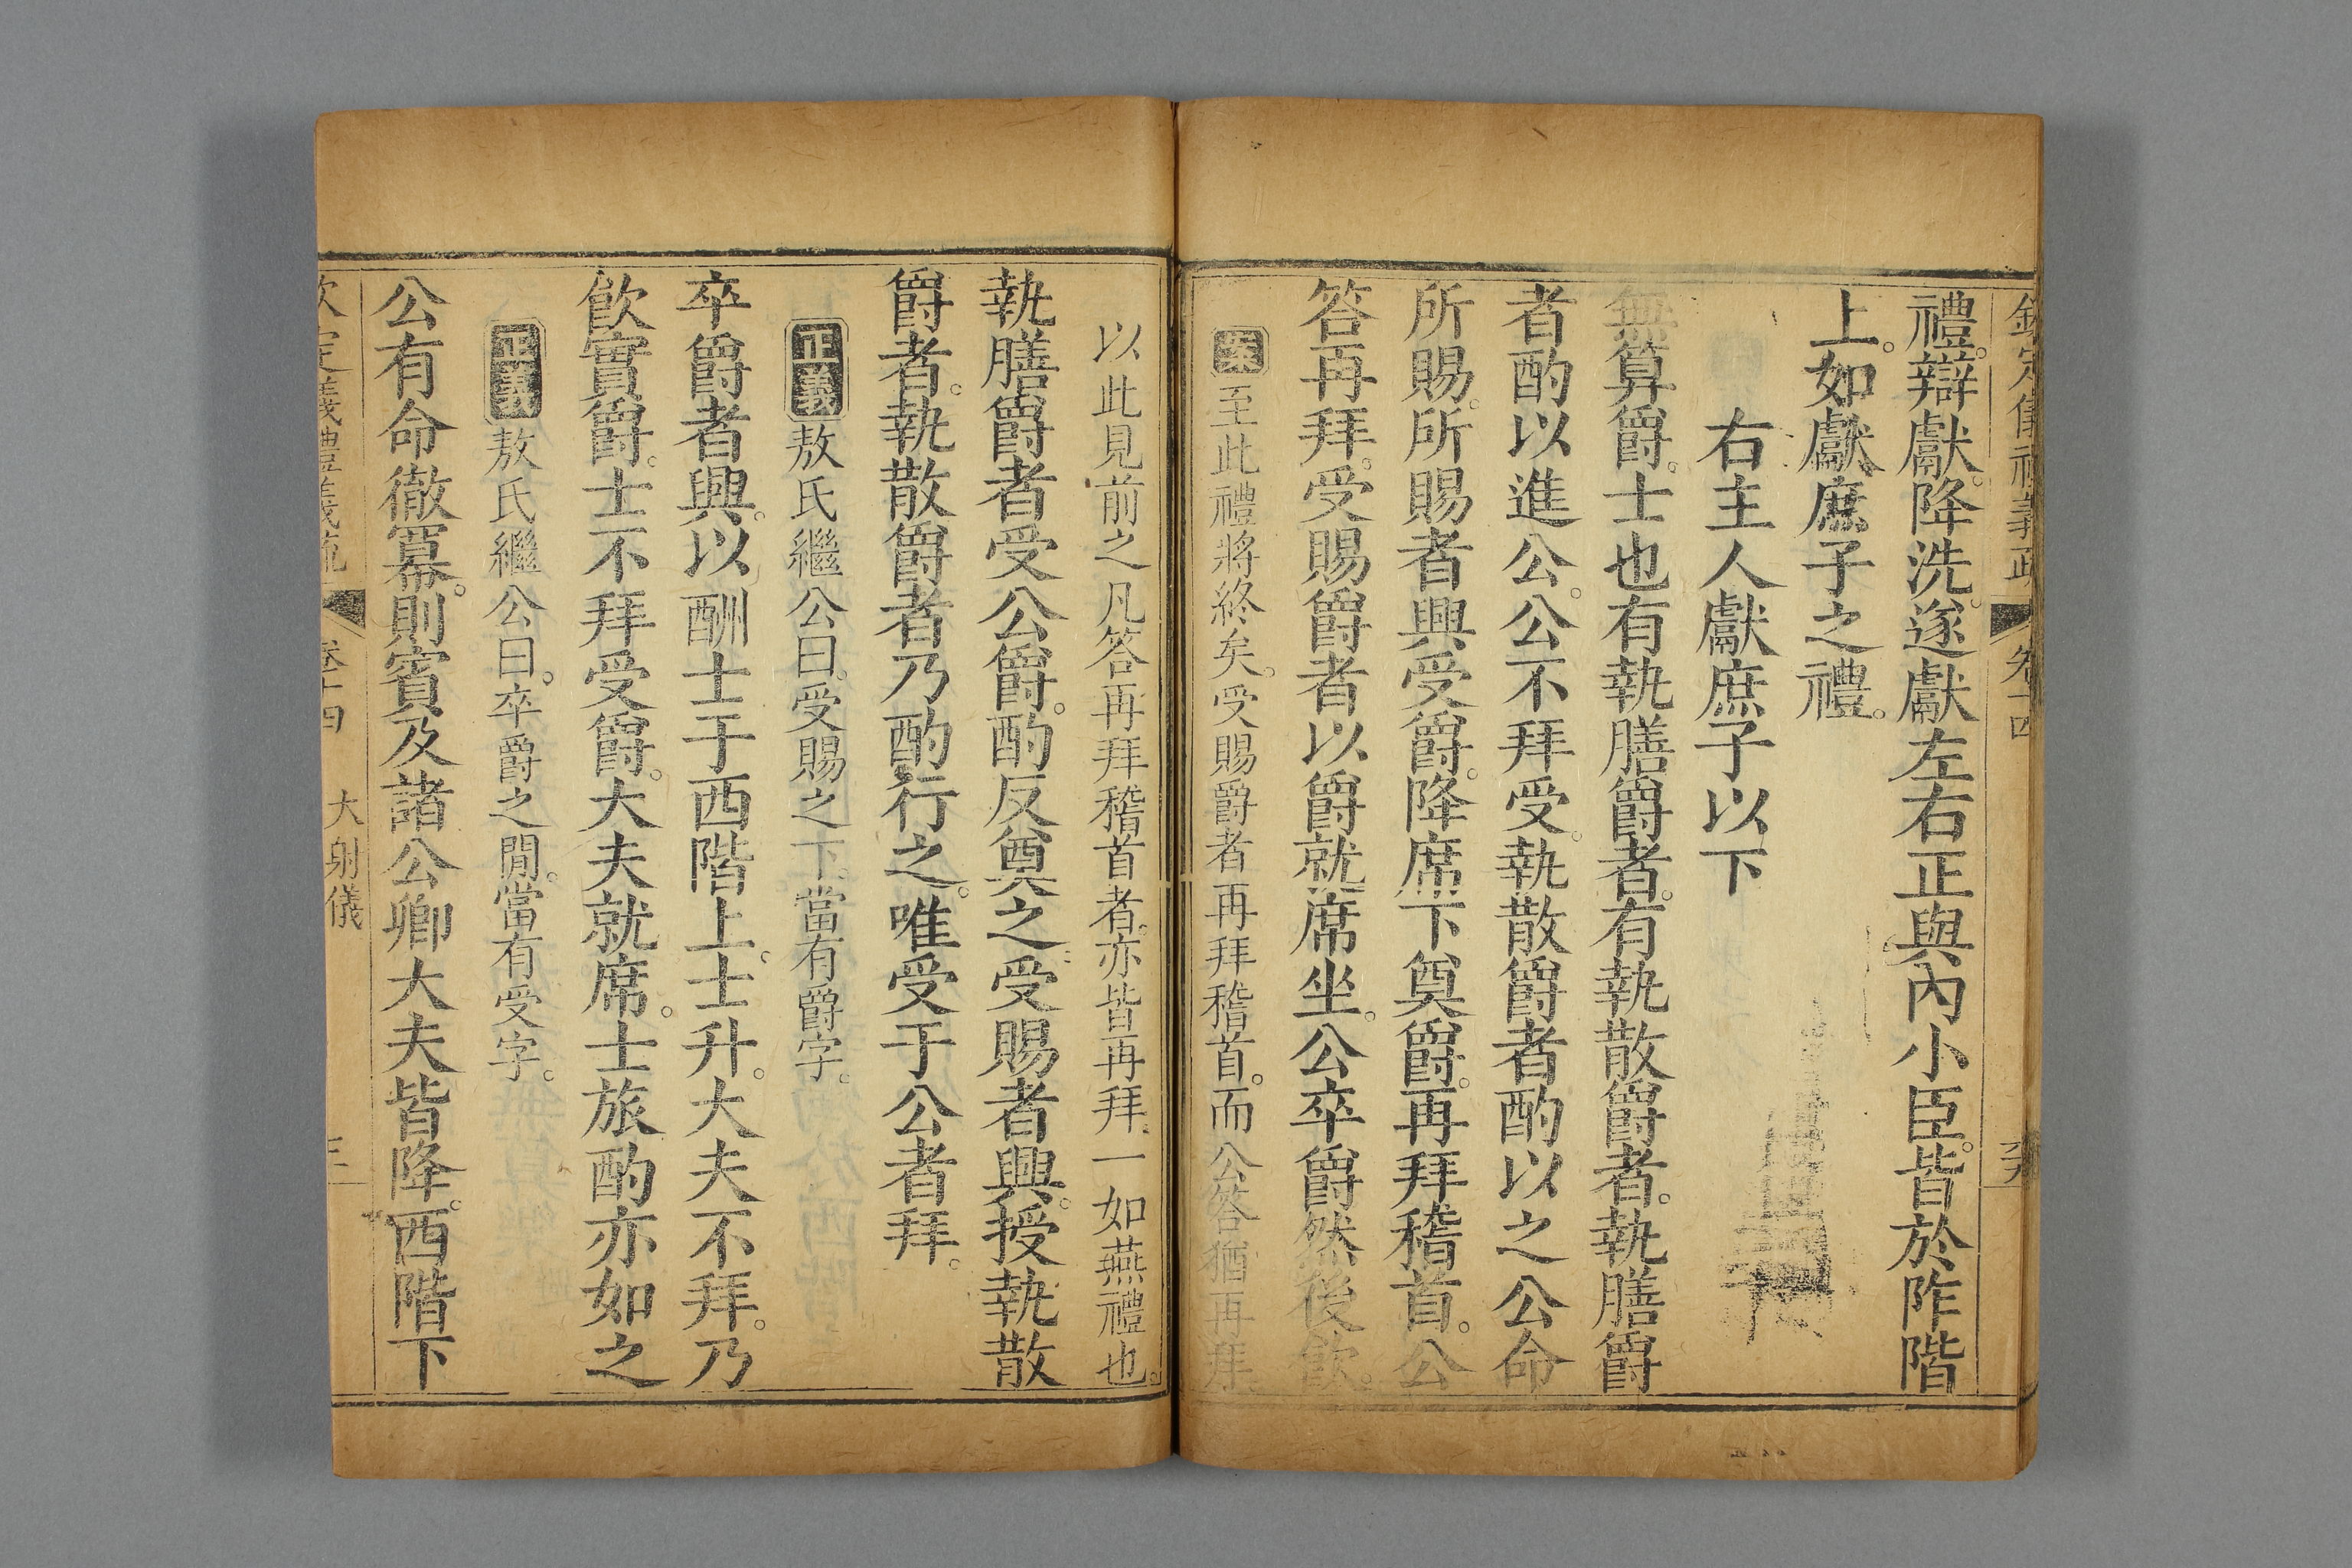 欽定儀禮義疏 卷十四
禮。辯獻。降洗。遂獻左右正與內小臣。皆於阼階
上。如獻庶子之禮。
右主人獻庶子以下
無算爵。士也有執膳爵者。有執散爵者。執膳爵
者酌以進公。公不拜受。執散爵者酌以之公命
所賜。所賜者興受爵。降席下奠爵。再拜稽首。公
答再拜。受賜爵者以爵就席坐。公卒爵然後飲。
案至此禮將終矣。受賜爵者再拜稽首。而公答猶再拜。
以此見前之凡答再拜稽首者。亦皆再拜。一如燕禮也。
執膳爵者受公爵。酌反奠之受賜者興。授執散
爵者。執散爵者乃酌行之。唯受于公者拜。
正義敖氏繼公曰。受賜之下。當有爵字。
卒爵者興。以酬士于西階上。士升。大夫不拜。乃
飲實爵。士不拜受爵。大夫就席。士旅酌亦如之
正義敖氏繼公曰。卒爵之閒。當有受字。
公有命徹冪。則賓及諸公卿大夫皆降。西階下
欽定儀禮義疏 卷十四 大射儀